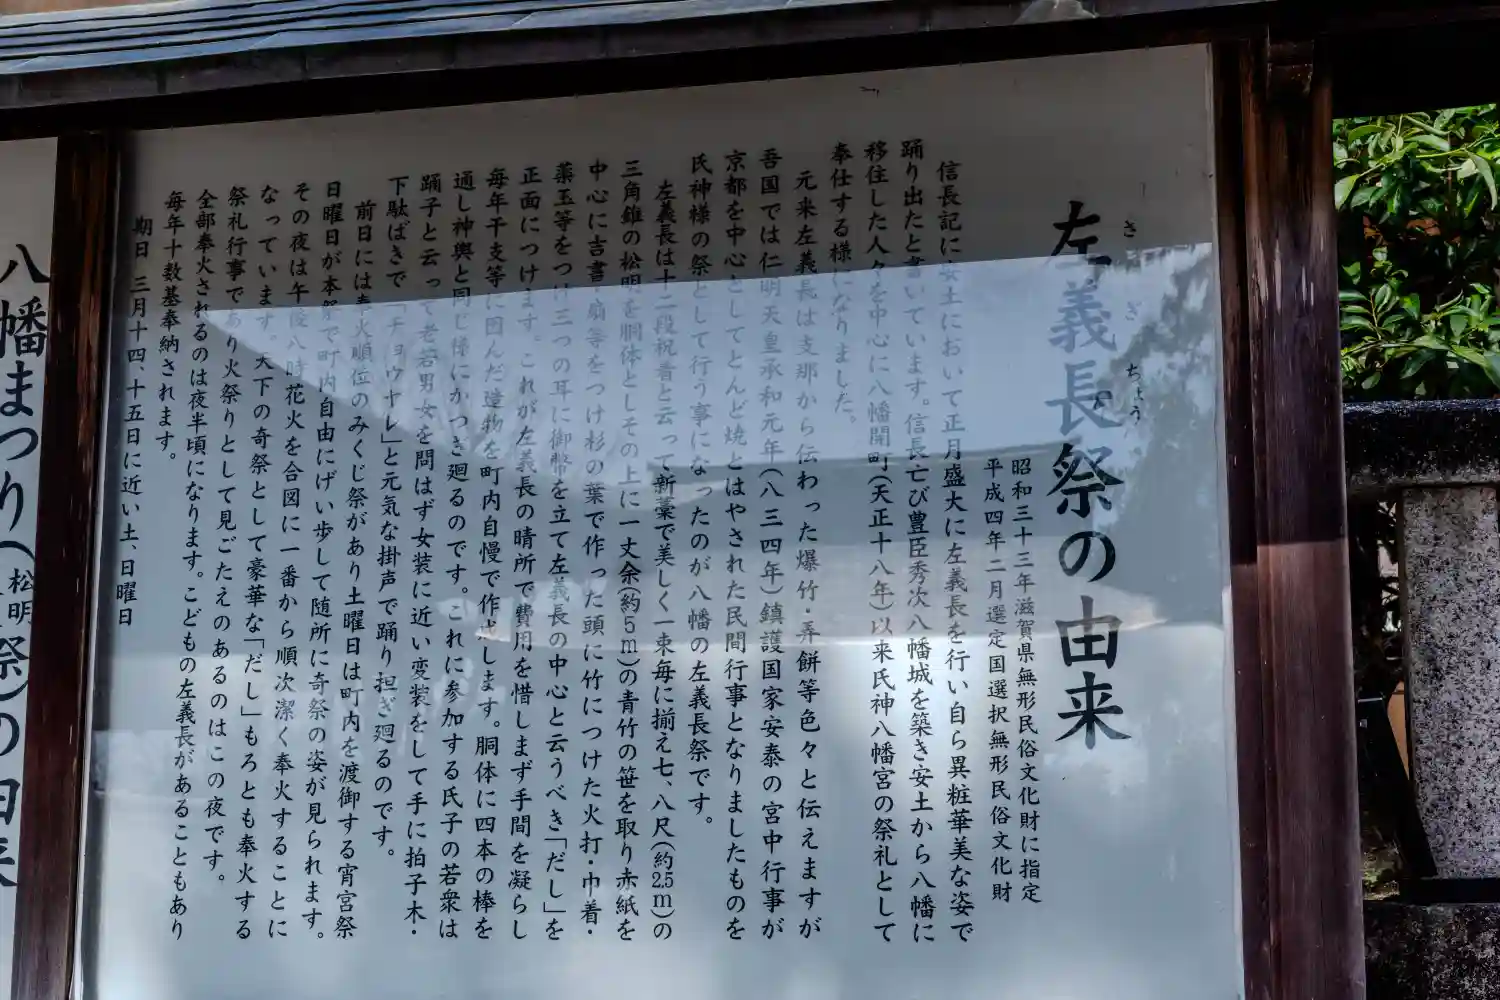 左義長祭の由来
さぎちょう
昭和三十三年滋賀県無形民俗文化財に指定
平成四年二月選定国選択無形民俗文化財
信長記に安土において正月盛大に左義長を行い自ら異粧華美な姿で
踊り出たと書いています。信長亡び豊臣秀次八幡城を築き安土から八幡に
移住した人々を中心に八幡開町(天正十八年)以来氏神八幡宮の祭礼として
奉仕する様になりました。
元来左義長は支那から伝わった爆竹・弄餅等色々と伝えますが
吾国では仁明天皇承和元年(八三四年)鎮護国家安泰の宮中行事が
京都を中心としてとんど焼とはやされた民間行事となりましたものを
氏神様の祭として行う事になったのが八幡の左義長祭です。
左義長は十二段祝着と云って新藁で美しく一束毎に揃え七、八尺(約2.5m)の
三角錐の松明を胴体としその上に一丈余(約5m)の青竹の笹を取り赤紙を
中心に吉書・扇等をつけ杉の葉で作った頭に竹につけた火打・巾着・
薬玉等をつけ三つの耳に御幣を立て左義長の中心と云うべき「だし」を
正面につけます。これが左義長の晴所で費用を惜しまず手間を凝らし
毎年干支等に因んだ造物を町内自慢で作成します。胴体に四本の棒を
通し神輿と同じ様にかつぎ廻るのです。これに参加する氏子の若衆は
踊子と云って老若男女を問はず女装に近い変装をして手に拍子木・
下駄ばきで「チョウヤレ」と元気な掛声で踊り担ぎ廻るのです。
前日には奉火順位のみくじ祭があり土曜日は町内を渡御する宵宮祭
日曜日が本祭で町内自由にけい歩して随所に奇祭の姿が見られます。
その夜は午後八時花火を合図に一番から順次潔く奉火することに
なっています。天下の奇祭として豪華な「だし」もろとも奉火する
祭礼行事であり火祭りとして見ごたえのあるのはこの夜です。
全部奉火されるのは夜半頃になります。こどもの左義長があることもあり
毎年十数基奉納されます。
期日 三月十四、十五日に近い土、日曜日
八幡まつり(松明祭)の由来